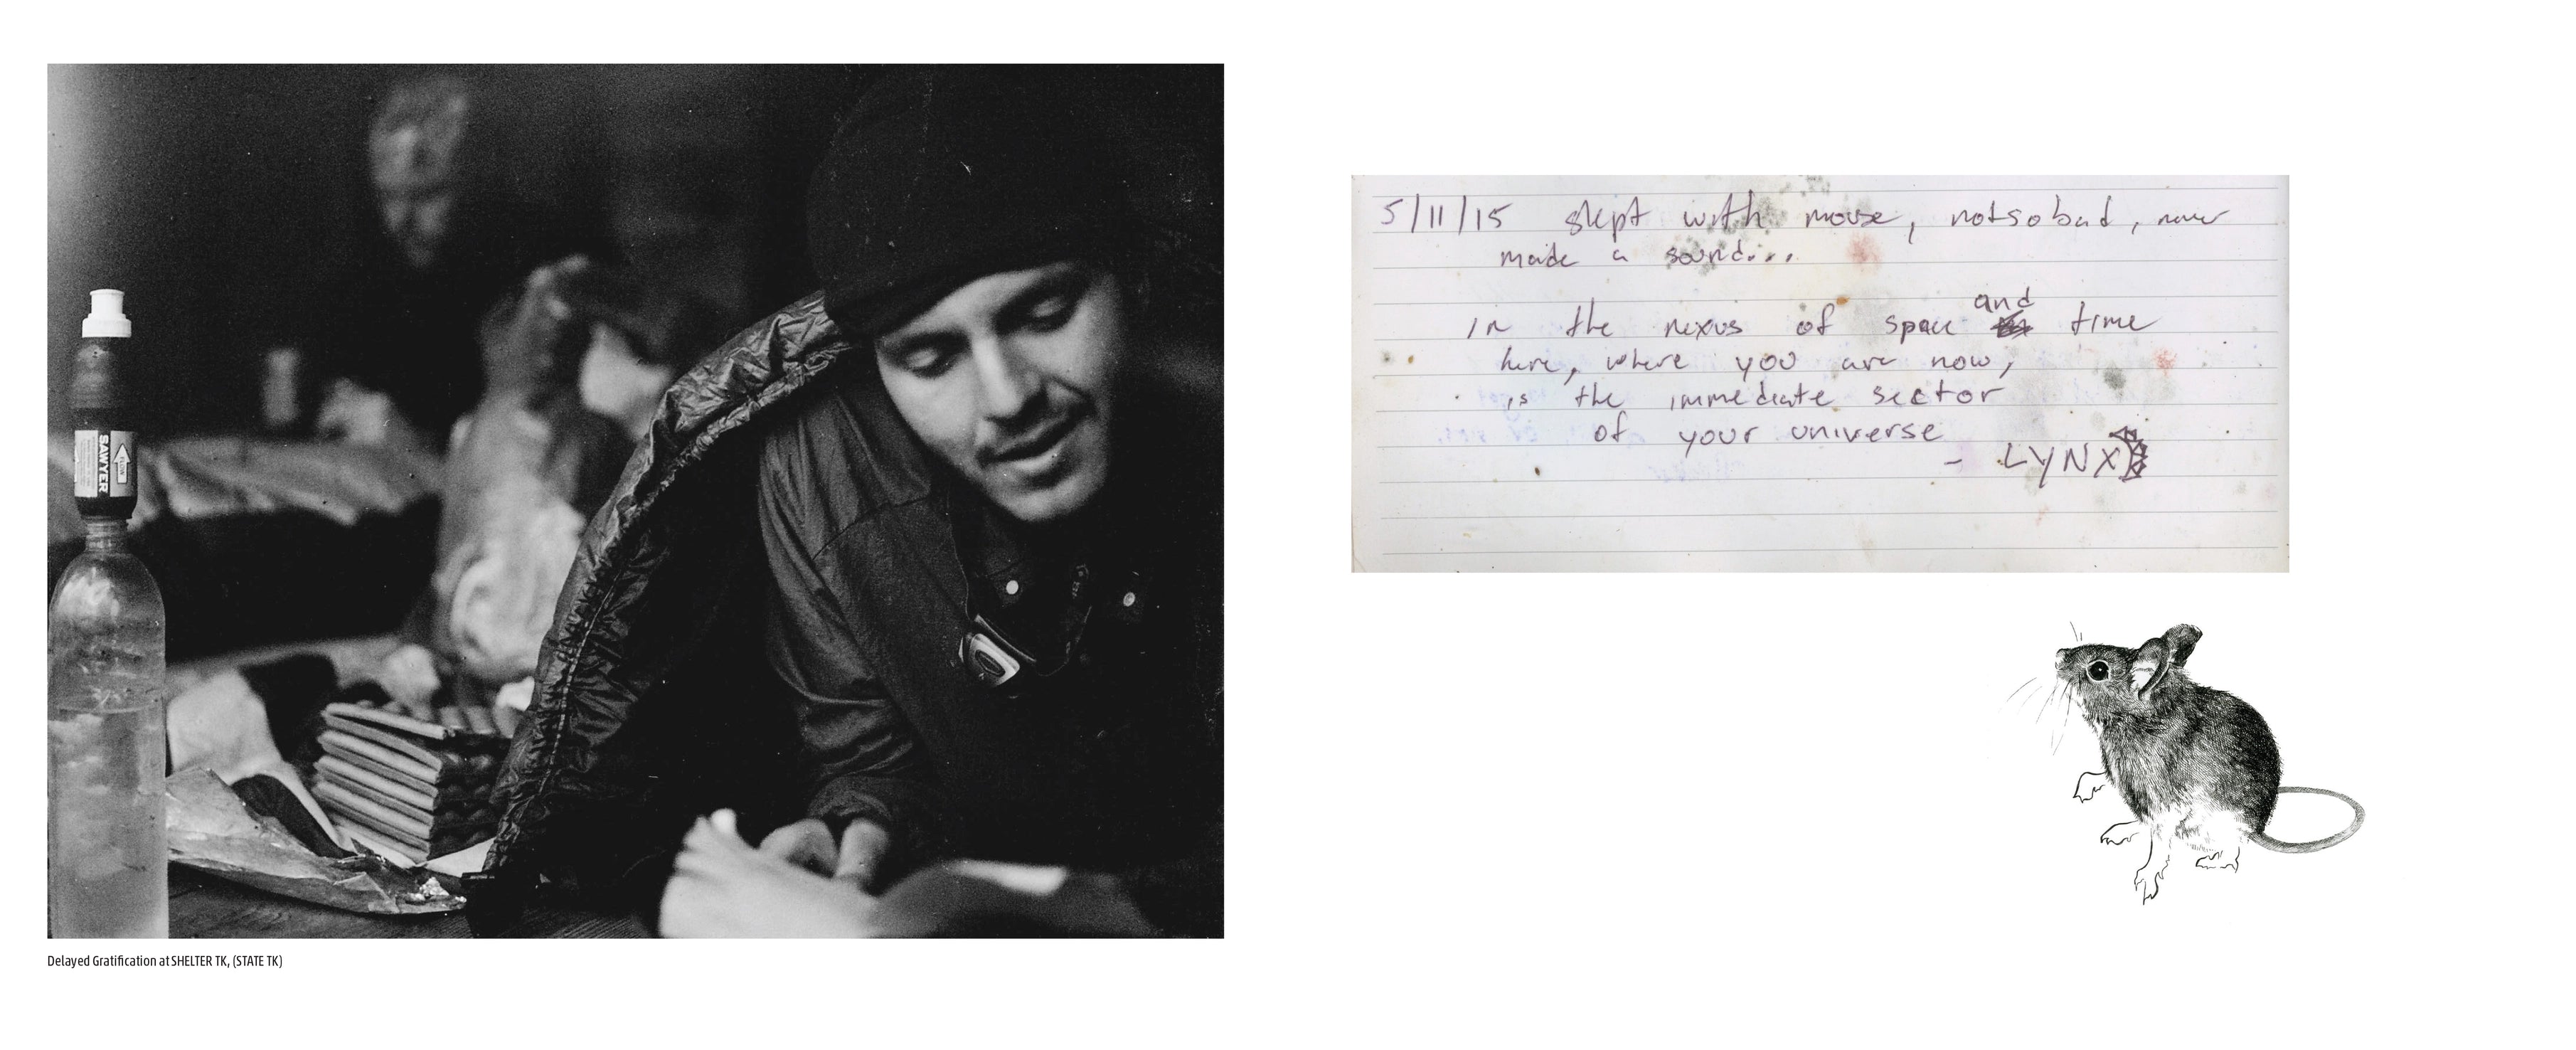 SAWYER
FLOW
Delayed Gratification at SHELTER TK, (STATE TK)
5/11/15 slept with mouse, not so bad, never
made a sound...
and
in the nexus of space time
here, where you are now,
is the immediate sector
of your universe
- LYNX